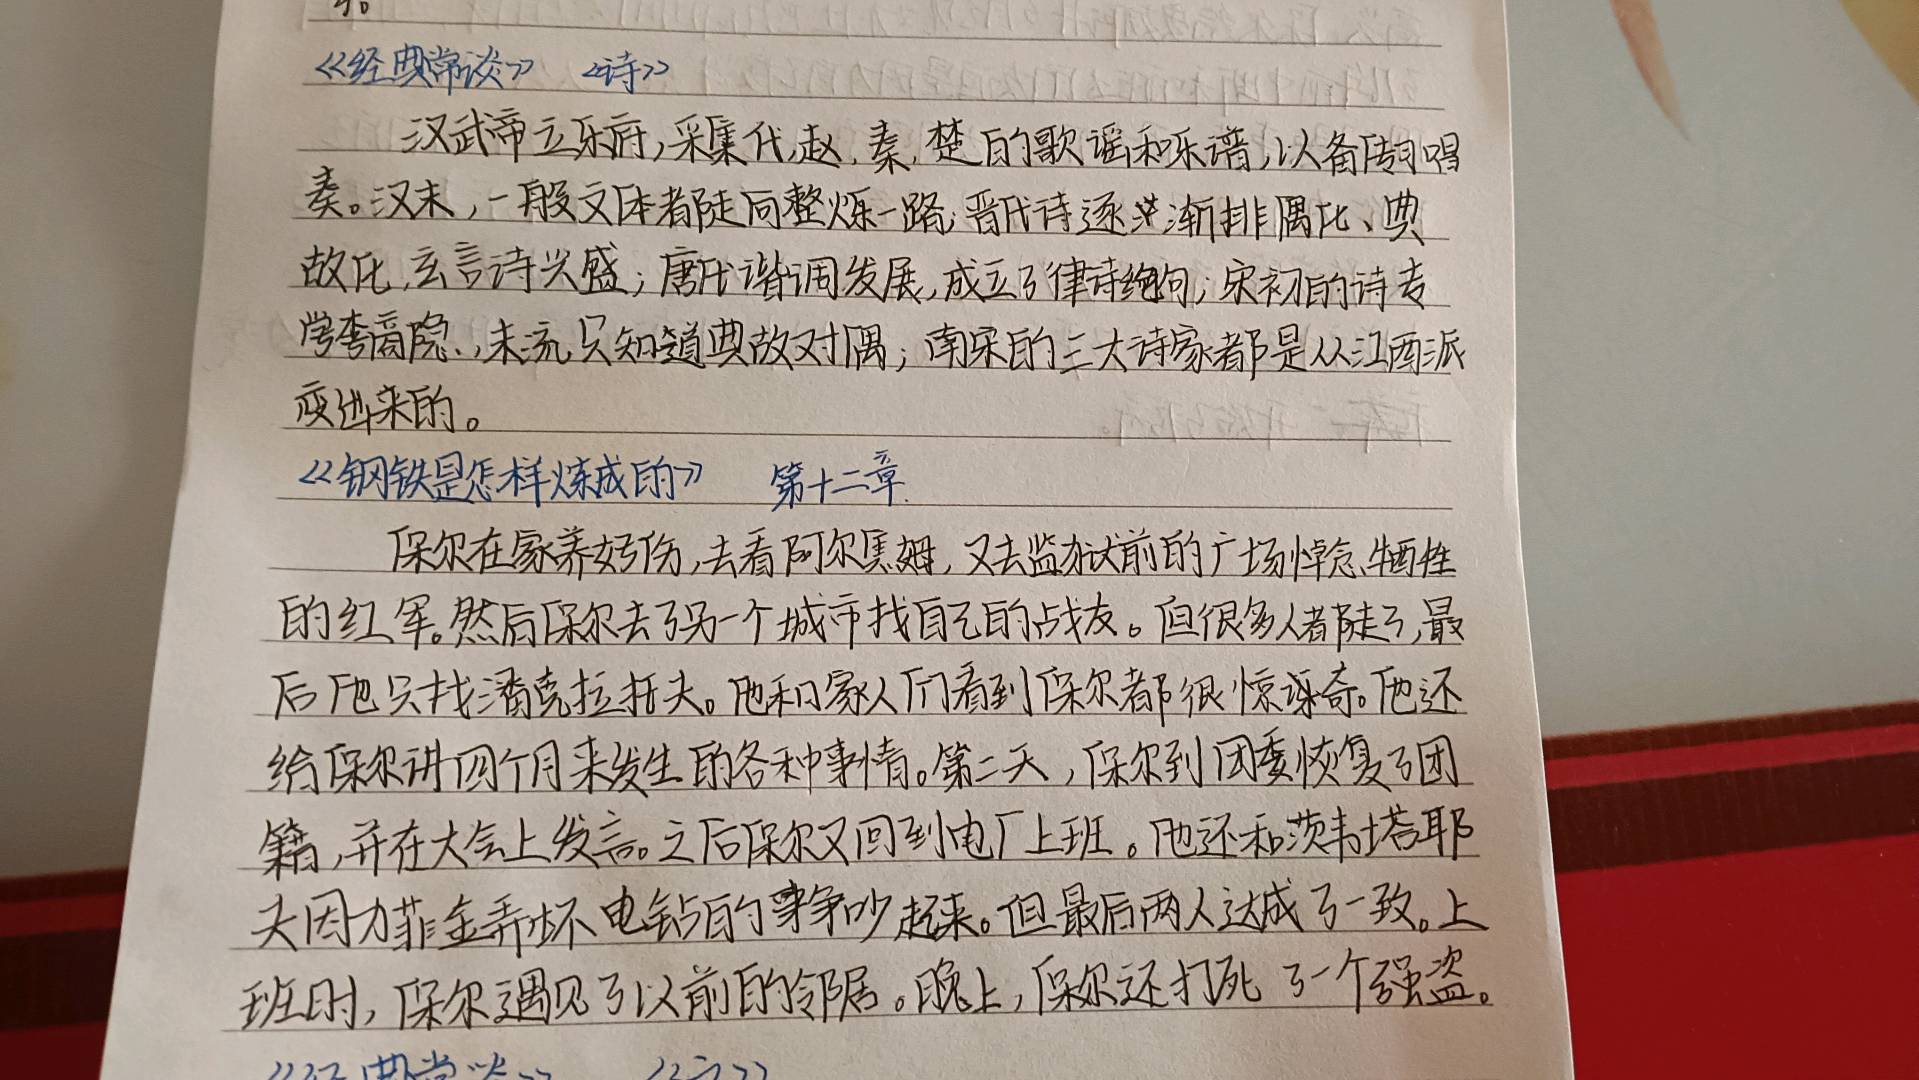 《经典常谈》 《诗》
汉武帝立乐府,采集代,赵,秦,楚的歌谣和乐谱,以备传词唱
奏。汉末,一般文体都走向整炼一路;晋代诗逐渐排偶化、典
故化,玄言诗兴盛;唐代谐调发展,成立了律诗绝句;宋初的诗专
学李商隐,末流只知道典故对偶;南宋的三大诗家都是从江西派
变出来的。
《钢铁是怎样炼成的》 第十二章
保尔在家养好伤,去看阿尔焦姆,又去监狱前的广场悼念牺牲
的红军。然后保尔去了另一个城市找自己的战友。但很多人都走了,最
后他只找潘克拉托夫。他和家人们看到保尔都很惊讶奇。他还
给保尔讲四个月来发生的各种事情。第二天,保尔到团委恢复了团
籍,并在大会上发言。之后保尔又回到电厂上班。他还和茨韦塔耶
夫因为菲金弄坏电钻的事争吵起来。但最后两人达成了一致。上
班时,保尔遇见了以前的邻居。晚上,保尔还打死了一个强盗。
《经典常谈》